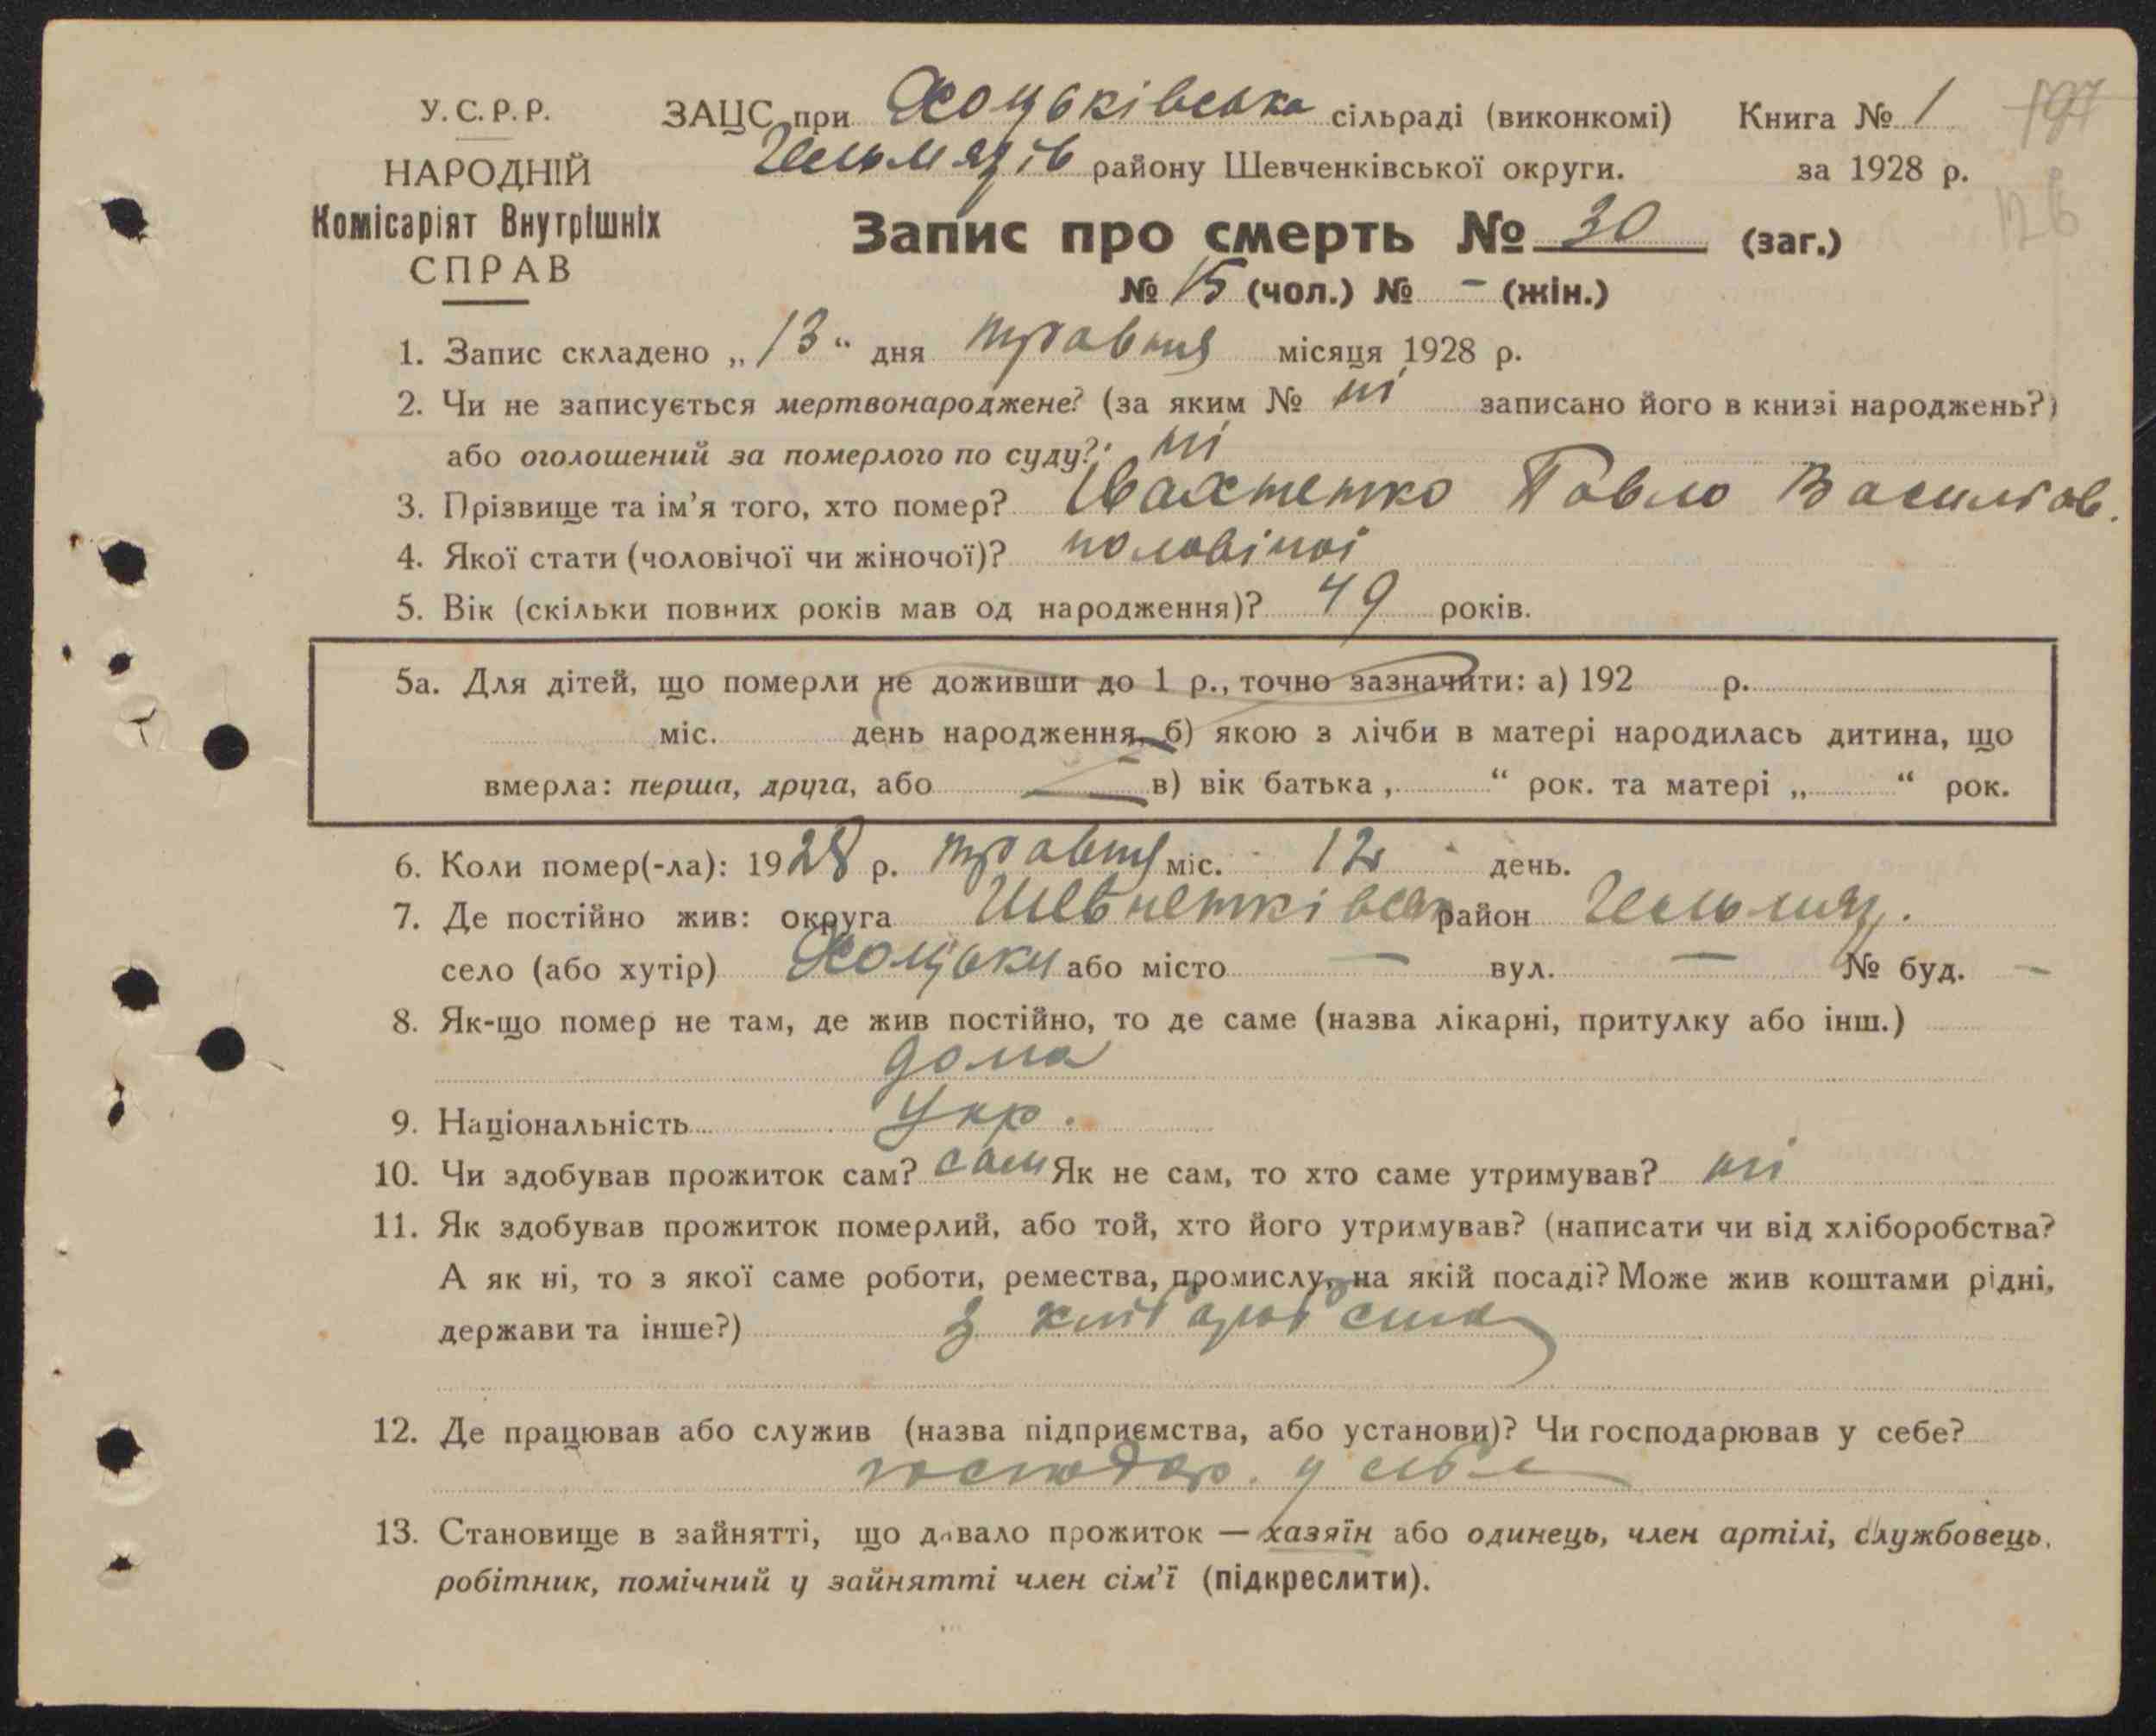 У.С.Р.Р.
НАРОДНІЙ
Комісаріят Внутрішніх
СПРАВ
ЗАЦС при Хоцьківська сільраді (виконкомі) Книга № 1
197
Гельмязів району Шевченківської округи. за 1928 р.
126
Запис про смерть № 30 (заг.)
№ 15 (чол.) № - (жін.)
1. Запис складено „13“ дня травня місяця 1928 р.
2. Чи не записується мертвонароджене? (за яким № ні записано його в книзі народжень?)
або оголошений за померлого по суду? ні
3. Прізвище та ім'я того, хто помер? Івахненко Павло Василіов.
4. Якої стати (чоловічої чи жіночої)? чоловічої
5. Вік (скільки повних років мав од народження)? 49 років.
5а. Для дітей, що померли не доживши до 1 р., точно зазначити: а) 192 р.
міс. день народження, б) якою з лічби в матері народилась дитина, що
вмерла: перша, друга, або в) вік батька „ “ рок. та матері „ “ рок.
6. Коли помер(-ла): 1928 р. травня міс. 12 день.
7. Де постійно жив: округа Шевченківськ район Гельмяз.
село (або хутір) Хоцьки або місто — вул. — № буд. —
8. Як-що помер не там, де жив постійно, то де саме (назва лікарні, притулку або інш.)
дома
9. Національність Укр.
10. Чи здобував прожиток сам? сам Як не сам, то хто саме утримував? ні
11. Як здобував прожиток померлий, або той, хто його утримував? (написати чи від хліборобства?
А як ні, то з якої саме роботи, ремества, промислу, на якій посаді? Може жив коштами рідні,
держави та інше?) з хліборобства
12. Де працював або служив (назва підприємства, або установи)? Чи господарював у себе?
господар. у себе
13. Становище в зайнятті, що давало прожиток — хазяїн або одинець, член артілі, службовець,
робітник, помічний у зайнятті член сім'ї (підкреслити).